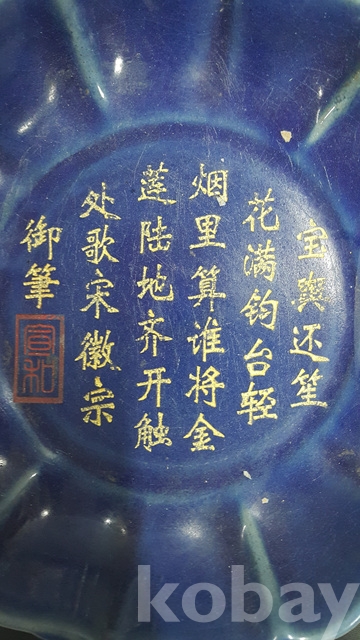 宝舆还笙
花满钧台轻
烟里算谁将金
莲陆地齐开触
处歌宋徽宗
御筆
宣和
kobay